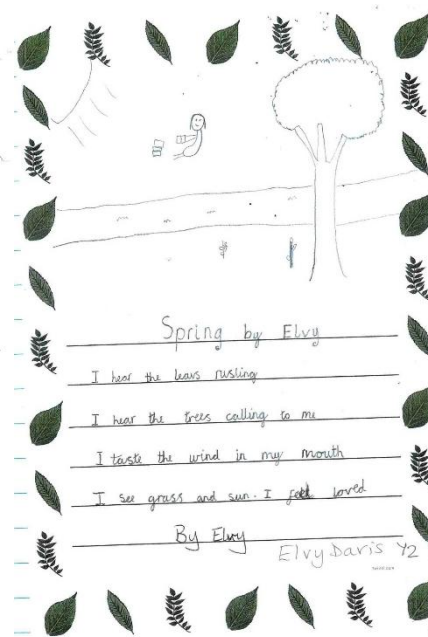 Spring by Elvy
I hear the leavs rusling
I hear the trees calling to me
I taste the wind in my mouth
I see grass and sun. I feel loved
By Elvy
Elvy Davis Y2